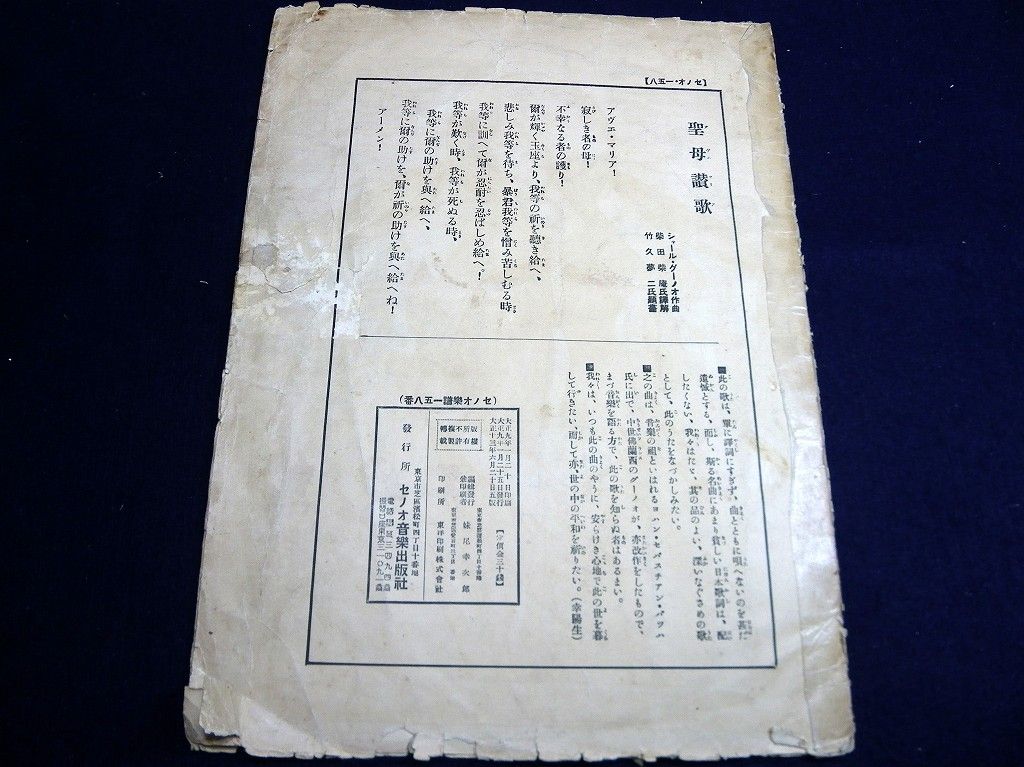 【セノオ・一五八】
聖母讃歌
シャール・グーノオ作曲
柴田柴庵氏譯解
竹久夢二氏顯畵
アヴエ・マリア！
寂しき者の母！
不幸なる者の護り！
爾が輝く玉座より、我等の祈を聽き給へ、
悲しみ我等を待ち、暴君我等を憎み苦しむる時
我等に訓へて爾が忍耐を忍ばしめ給へ。！
我等が歎く時、我等が死ぬる時、
我等に爾の助けを與へ給へ、
我等に爾の助けを、爾が祈の助けを與へ給へね！
アーメン！
此の歌は、單に譯詞にすぎず、曲とともに唄へないのを甚だ
遺憾とする、而し、斯る名曲にあまり貧しい日本歌詞は、配
したくない、我々はたゞ、其の品のよい、深いなぐさめの歌
として、此のうたをなづかしみたい。
之の曲は、音樂の祖といはれるヨハン・セバスチアン・バツハ
氏に出で、中世佛蘭西のグーノオが、亦改作をしたもので、
まづ音樂を語る方で、此の歌を知らぬ者はあるまい。
我々は、いつも此の曲のやうに、安らけき心地で此の世を暮
して行きたい、而して亦、世の中の平和を祈りたい。（幸陽生）
（セノオ樂譜一五八番）
版權所有
不許複製
轉載
大正九年一月二十日印刷
大正九年一月二十五日發行
大正十三年六月二十日五版
【定價金三十錢】
編輯發行兼印刷者
妹尾幸次郎
印刷所
東洋印刷株式會社
東京市芝區濱松町四丁目十番地
發行所 セノオ音樂出版社